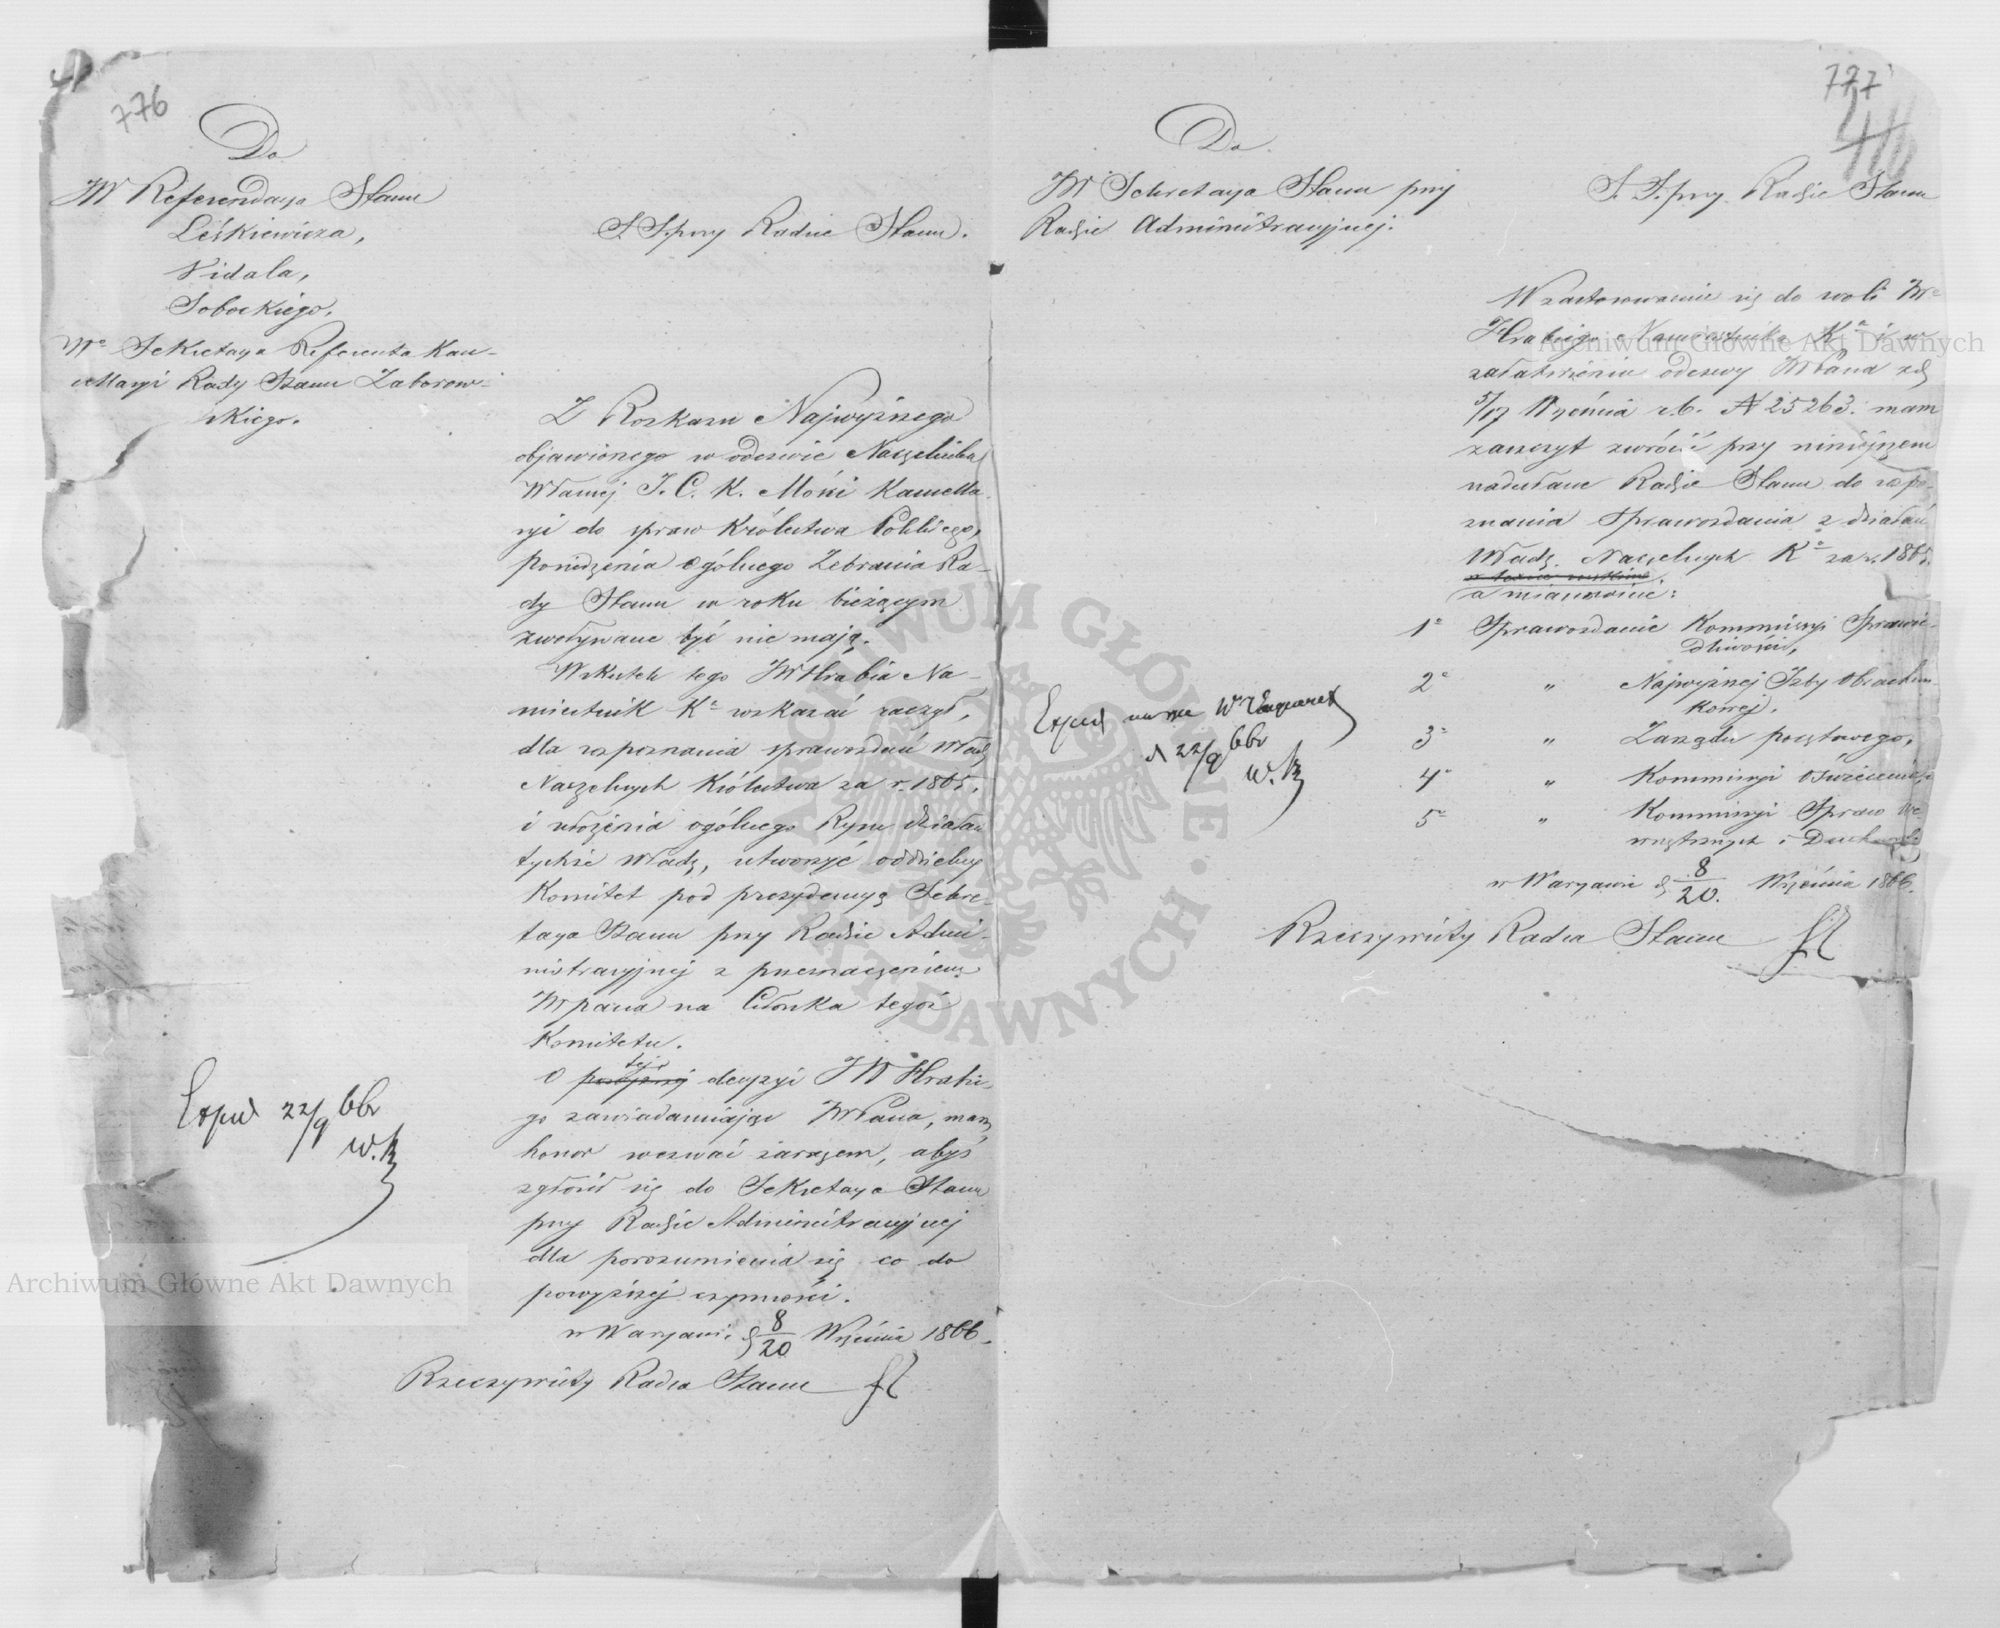 776
Do
JW Referendarza Stanu
Leśkiewicza,
Vidala,
Sobockiego,
Wo Sekretarza Referenta Kan-
cellaryi Rady Stanu Zaborow-
skiego.
S. S. przy Radzie Stanu.
Z Rozkazu Najwyższego
objawionego w odezwie Naczelnika
Własnej J. C. K. Mości Kancella-
ryi do spraw Królestwa Polskiego,
posiedzenia ogólnego Zebrania Ra-
dy Stanu w roku bieżącym
zwoływane być nie mają.
Wskutek tego JW Hrabia Na-
miestnik Ka wskazać raczył,
dla rozpoznania sprawozdań Władz
Naczelnych Królestwa za r. 1865,
i ułożenia ogólnego Rysu działań
tychże Władz, utworzyć oddzielny
Komitet pod prezydencyą Sekre-
tarza Stanu przy Radzie Admi-
nistracyjnej z przeznaczeniem
JWpana na Członka tegoż
Komitetu.
tej
O decyzyi JW Hrabie-
go zawiadamiając JWPana, mam
honor wezwać zarazem, abyś
zgłosił się do Sekretarza Stanu
przy Radzie Administracyjnej
dla porozumienia się co do
powyższej czynności.
w Warszawie d 8/20 Września 1866.
Rzeczywisty Radca Stanu
Exped 22/9 66r
W. K
777
Do
JW Sekretarza Stanu przy
Radzie Administracyjnej.
S. S. przy Radzie Stanu
W zastosowaniu się do woli JWo
Hrabiego Namiestnika Ka i w
załatwieniu odezwy JWPana z d
5/17 Września r. b. N 25263. mam
zaszczyt zwrócić przy niniejszem
nadesłane Radzie Stanu do rozpo-
znania Sprawozdania z działań
Władz Naczelnych Ka za r. 1865.
a mianowicie:
1o Sprawozdanie Kommissyi Sprawie-
dliwości,
2o " Najwyższej Izby Obrachun-
kowej.
3o " Zarządu pocztowego,
4o " Kommissyi Oświecenia,
5o " Kommissyi Spraw We-
wnętrznych i Duchownych
w Warszawie d 8/20. Września 1866.
Rzeczywisty Radca Stanu
Exped
d 22/9 66r
W. K
Archiwum Główne Akt Dawnych
Archiwum Główne Akt Dawnych
ARCHIWUM GŁÓWNE AKT DAWNYCH